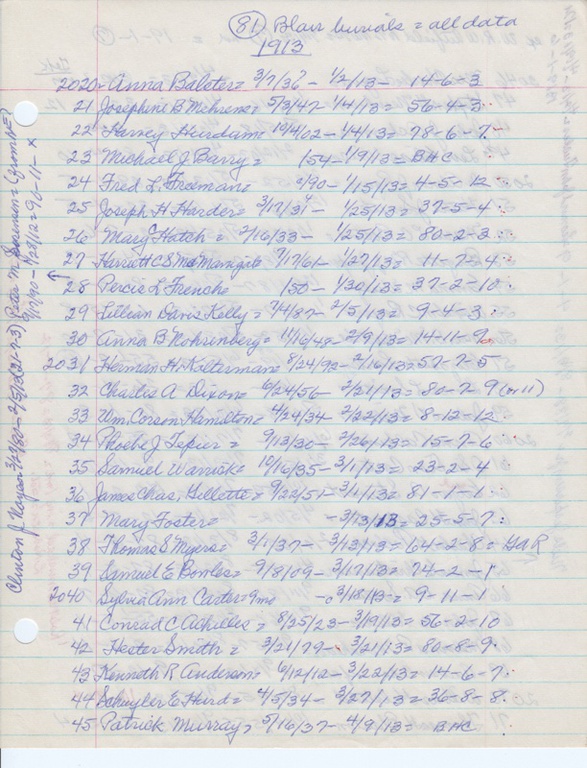 (81) Blair burials = all data
1913
2020 - Anna Balster = 3/7/36 - 1/2/13 - 14-6-3
21 Josephine B Mehrens = 5/3/47 - 1/4/13 = 56-4-3
22 Harvey Hurdam = 10/4/02 - 1/4/13 = 78-6-7
23 Michael J. Barry = 154 - 1/9/13 = BHC
24 Fred L. Freeman = 2/90 - 1/15/13 = 4-5-12
25 Joseph H Harder = 3/17/31 - 1/25/13 = 37-5-4
26 Mary C Hatch = 2/16/33 - 1/25/13 = 80-2-3
27 Harriett C S McManigal = 7/17/61 - 1/27/13 = 11-7-4
28 Percie L French = 150 - 1/30/13 = 37-2-10
29 Lillian Davis Kelly = 7/4/87 - 2/5/13 = 9-4-3
30 Anna B Nohrenberg = 11/16/48 - 2/9/13 = 14-11-9
2031 Herman H. Kolterman = 8/24/92 - 2/16/13 = 57-7-5
32 Charlie A Dixon = 6/24/56 - 2/21/13 = 80-7-9 (or 11)
33 Wm. Corson Hamilton = 4/24/34 - 2/22/13 = 8-12-12
34 Phoebe J = 9/13/30 - 2/26/13 = 15-7-6
35 Samuel Warrick = 10/16/35 - 3/1/13 = 23-2-4
36 James Chas. Gillette = 9/22/51 - 3/1/13 = 81-1-1
37 Mary Foster = - 3/13/13 = 25-5-7
38 Thomas S Myers = 3/1/37 - 3/13/13 = 64-2-8 = GAR
39 Samuel E Bowles = 9/8/09 - 3/17/13 = 74-2-1
2040 Sylvia Ann Carter = 9mo - 3/18/13 = 9-11-1
41 Conrad C Achilles = 8/25/23 - 3/19/13 = 56-2-10
42 Hester Smith = 3/21/79 - 3/21/13 = 80-8-9
43 Kenneth R Anderson = 6/12/12 - 3/22/13 = 14-6-7
44 Schuyler E Hurd = 4/5/34 - 3/27/13 = 36-8-8
45 Patrick Murray = 5/16/37 - 4/9/13 = BHC